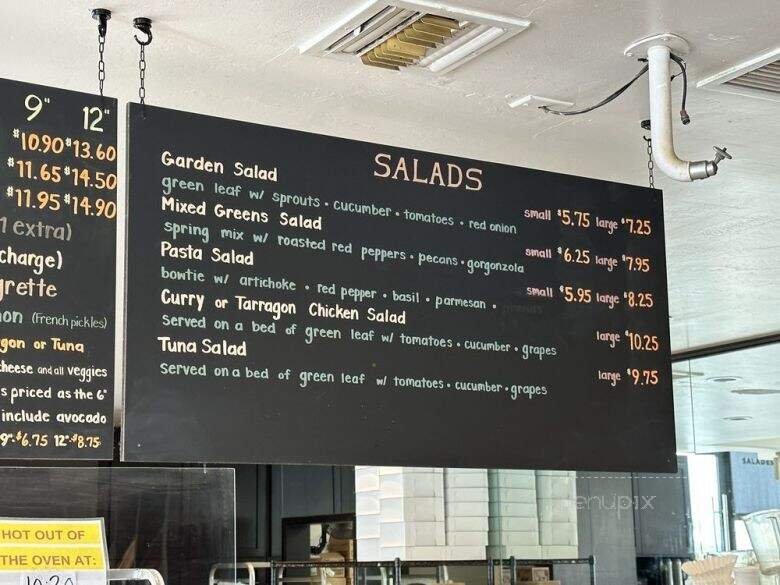 9" 12"
$10.90 $13.60
$11.65 $14.50
$11.95 $14.90
extra)
charge)
grette
on (French pickles)
gon or Tuna
cheese and all veggies
s priced as the 6"
include avocado
9"-$6.75 12"-$8.75
SALADS
Garden Salad
green leaf w/ sprouts • cucumber • tomatoes • red onion small $5.75 large $7.25
Mixed Greens Salad
spring mix w/ roasted red peppers • pecans • gorgonzola small $6.25 large $7.95
Pasta Salad
bowtie w/ artichoke • red pepper • basil • parmesan • small $5.95 large $8.25
Curry or Tarragon Chicken Salad
Served on a bed of green leaf w/ tomatoes • cucumber • grapes large $10.25
Tuna Salad
Served on a bed of green leaf w/ tomatoes • cucumber • grapes large $9.75
HOT OUT OF
THE OVEN AT:
10:20
SALADES
menupix